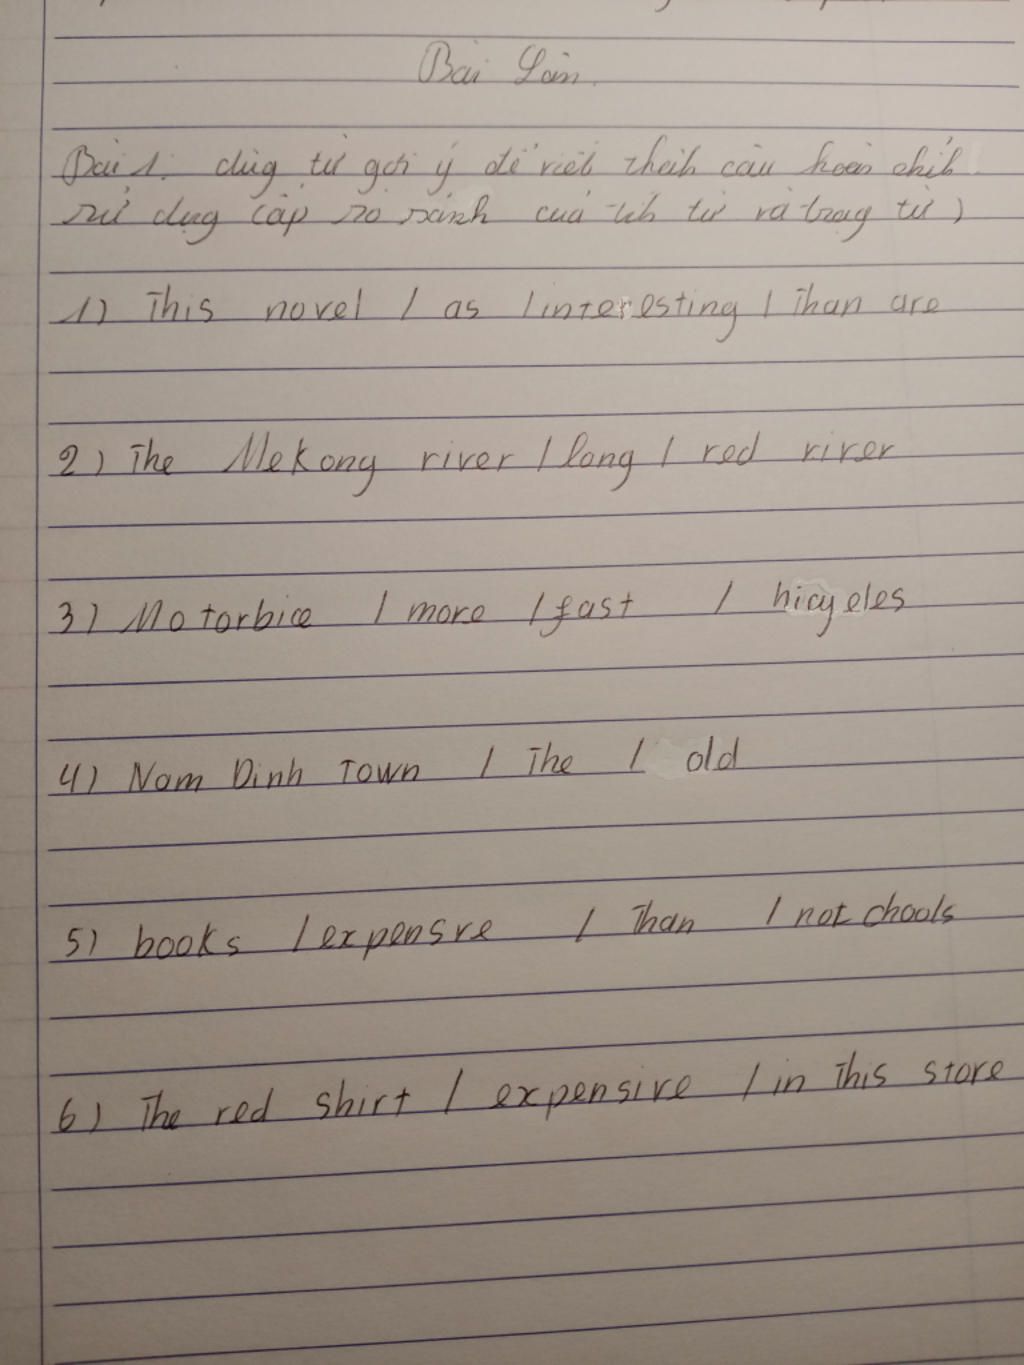 Bài Làm.
Bài 1: dùg từ gợi ý để viết thàh câu hoàn chỉh
sử dụg cấp so sánh của tíh từ và trạg từ)
1) This novel / as / interesting / Than are
2) The Mekong river / long / red river
3) Motorbice / more / fast / hicycles
4) Nam Dinh Town / The / old
5) books / expensve / Than / not chools
6) The red shirt / expensive / in This store